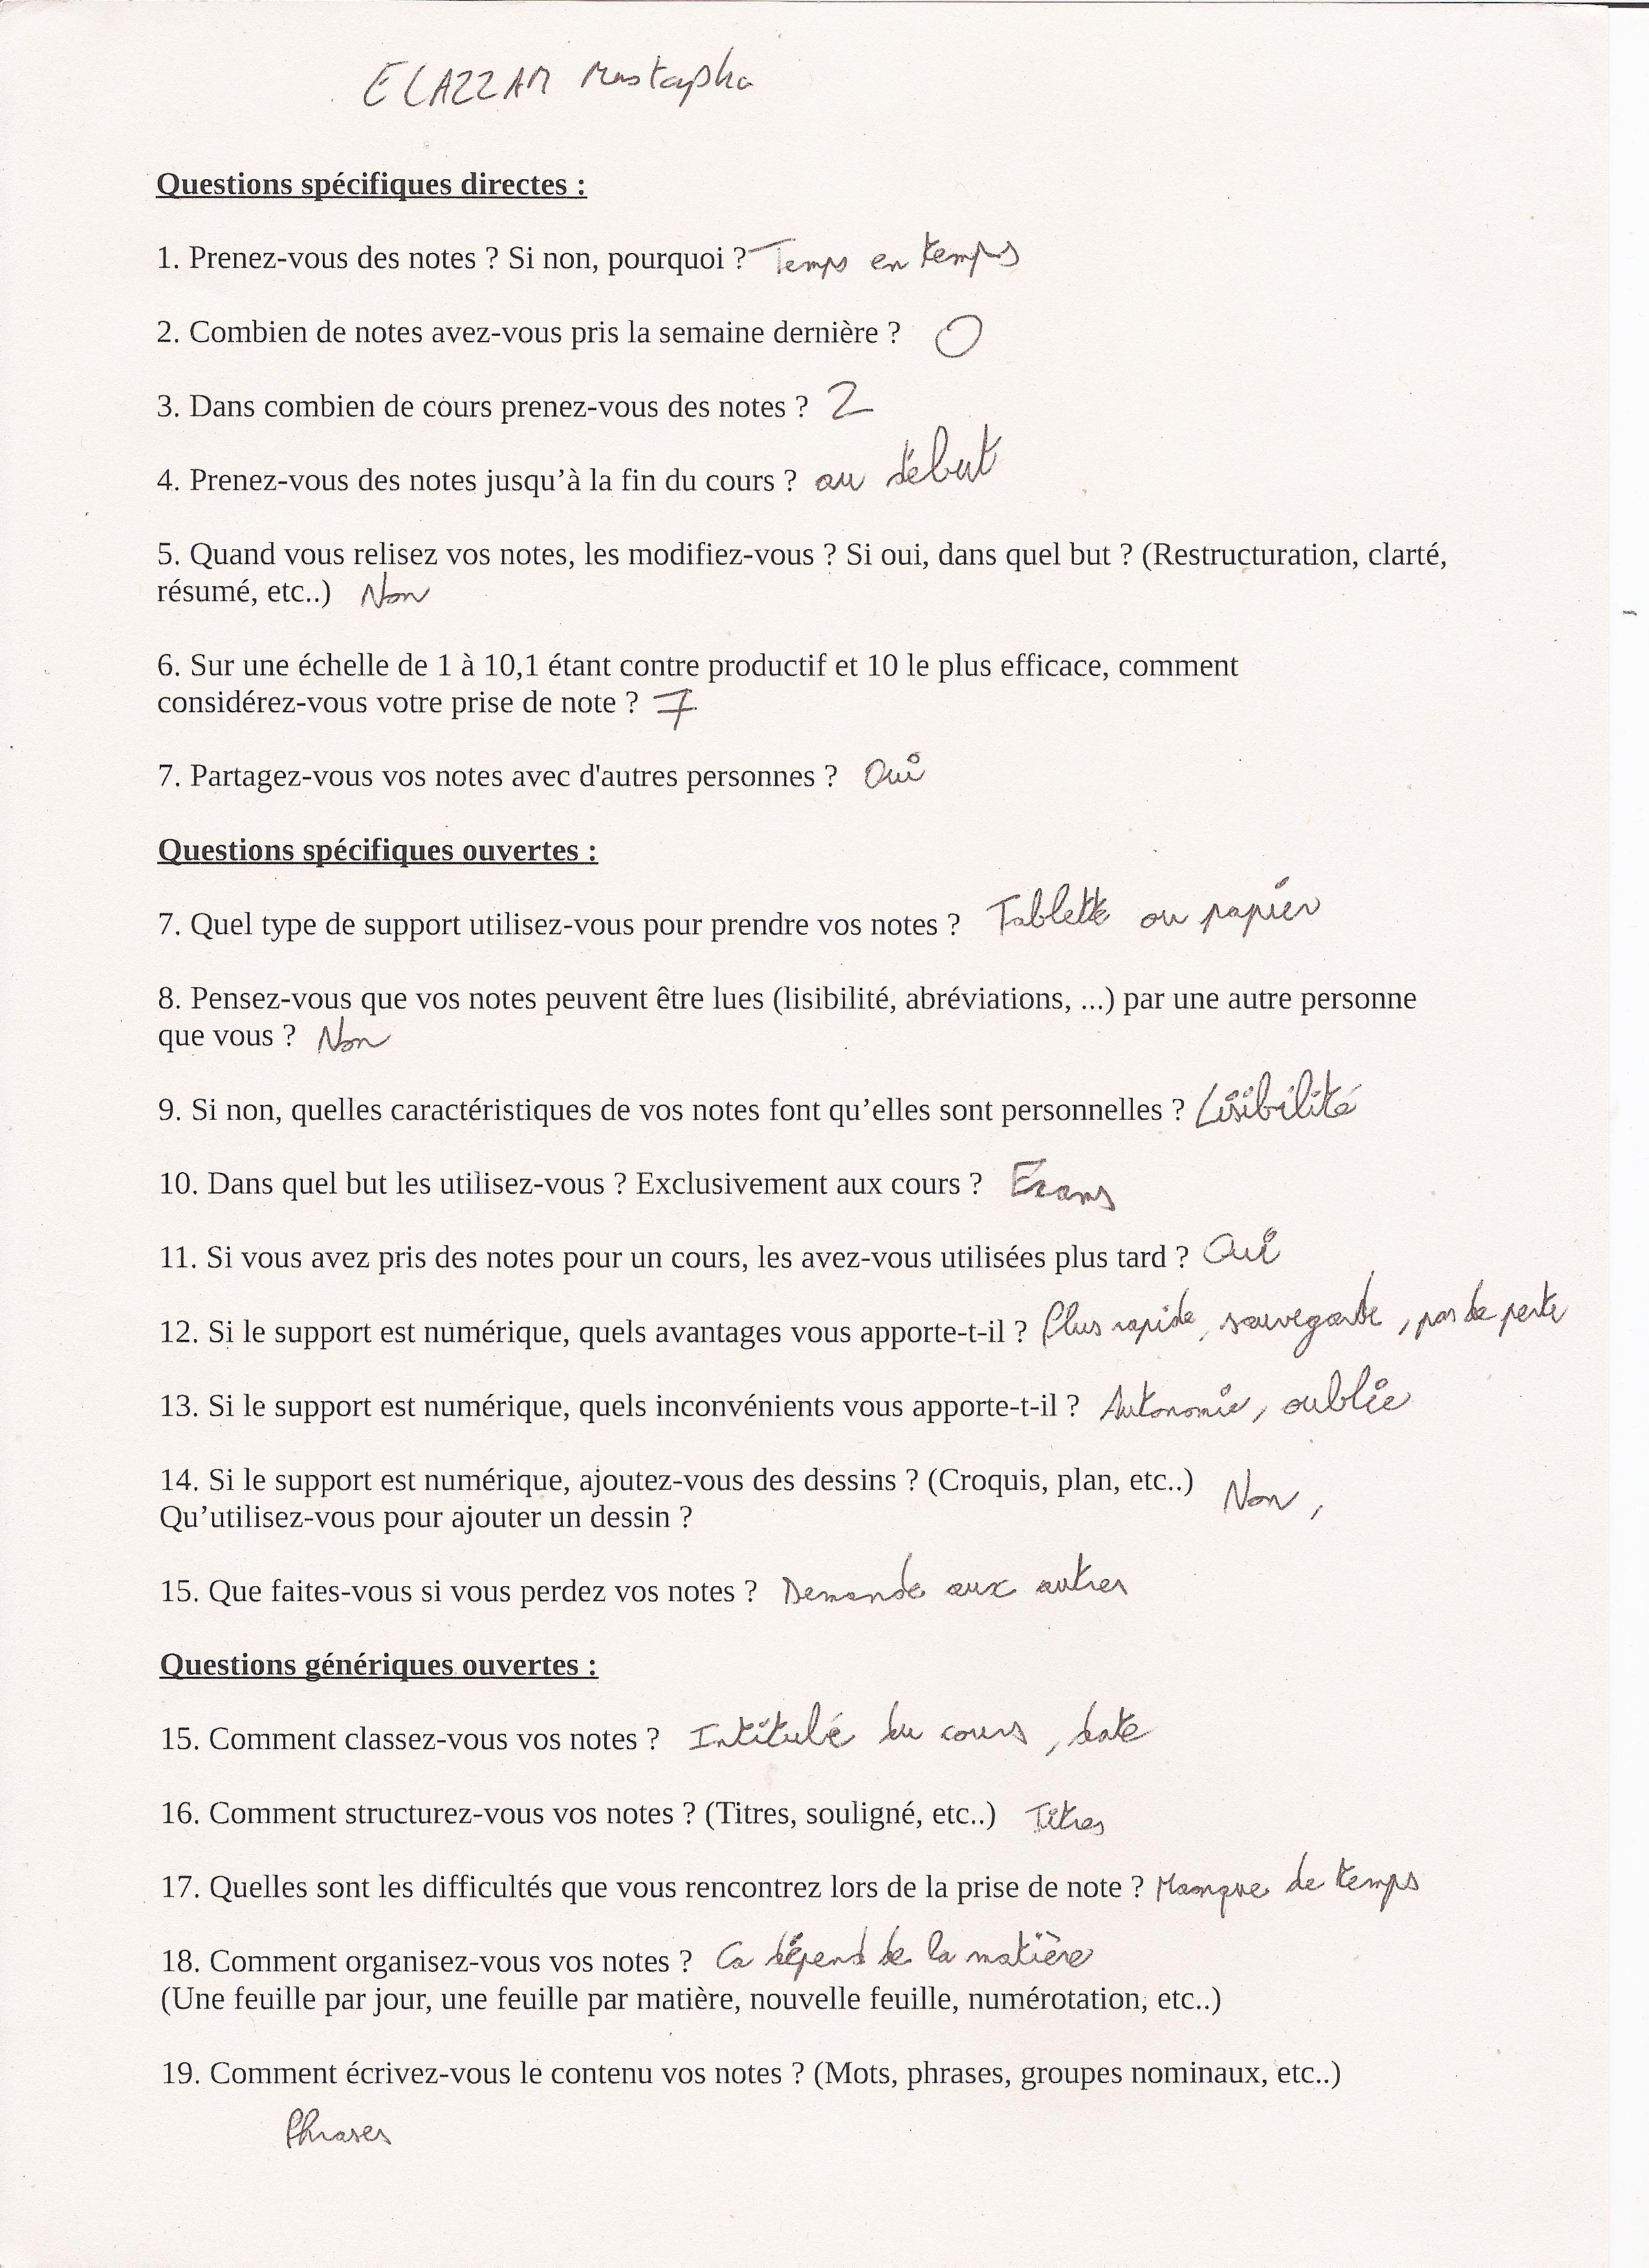 ELAZZAM Mustapha
Questions spécifiques directes :
1. Prenez-vous des notes ? Si non, pourquoi ? Temps en temps
2. Combien de notes avez-vous pris la semaine dernière ? 0
3. Dans combien de cours prenez-vous des notes ? 2
4. Prenez-vous des notes jusqu’à la fin du cours ? au début
5. Quand vous relisez vos notes, les modifiez-vous ? Si oui, dans quel but ? (Restructuration, clarté,
résumé, etc..) Non
6. Sur une échelle de 1 à 10,1 étant contre productif et 10 le plus efficace, comment
considérez-vous votre prise de note ? 7
7. Partagez-vous vos notes avec d'autres personnes ? Oui
Questions spécifiques ouvertes :
7. Quel type de support utilisez-vous pour prendre vos notes ? Tablette ou papier
8. Pensez-vous que vos notes peuvent être lues (lisibilité, abréviations, ...) par une autre personne
que vous ? Non
9. Si non, quelles caractéristiques de vos notes font qu’elles sont personnelles ? Lisibilité
10. Dans quel but les utilisez-vous ? Exclusivement aux cours ? Exams
11. Si vous avez pris des notes pour un cours, les avez-vous utilisées plus tard ? Oui
12. Si le support est numérique, quels avantages vous apporte-t-il ? Plus rapide, sauvegarde, pas de perte
13. Si le support est numérique, quels inconvénients vous apporte-t-il ? Autonomie, oublie
14. Si le support est numérique, ajoutez-vous des dessins ? (Croquis, plan, etc..) Non,
Qu’utilisez-vous pour ajouter un dessin ?
15. Que faites-vous si vous perdez vos notes ? Demande aux autres
Questions génériques ouvertes :
15. Comment classez-vous vos notes ? Intitulé du cours, date
16. Comment structurez-vous vos notes ? (Titres, souligné, etc..) Titres
17. Quelles sont les difficultés que vous rencontrez lors de la prise de note ? Manque de temps
18. Comment organisez-vous vos notes ? Ca dépend de la matière
(Une feuille par jour, une feuille par matière, nouvelle feuille, numérotation, etc..)
19. Comment écrivez-vous le contenu vos notes ? (Mots, phrases, groupes nominaux, etc..)
Phrases